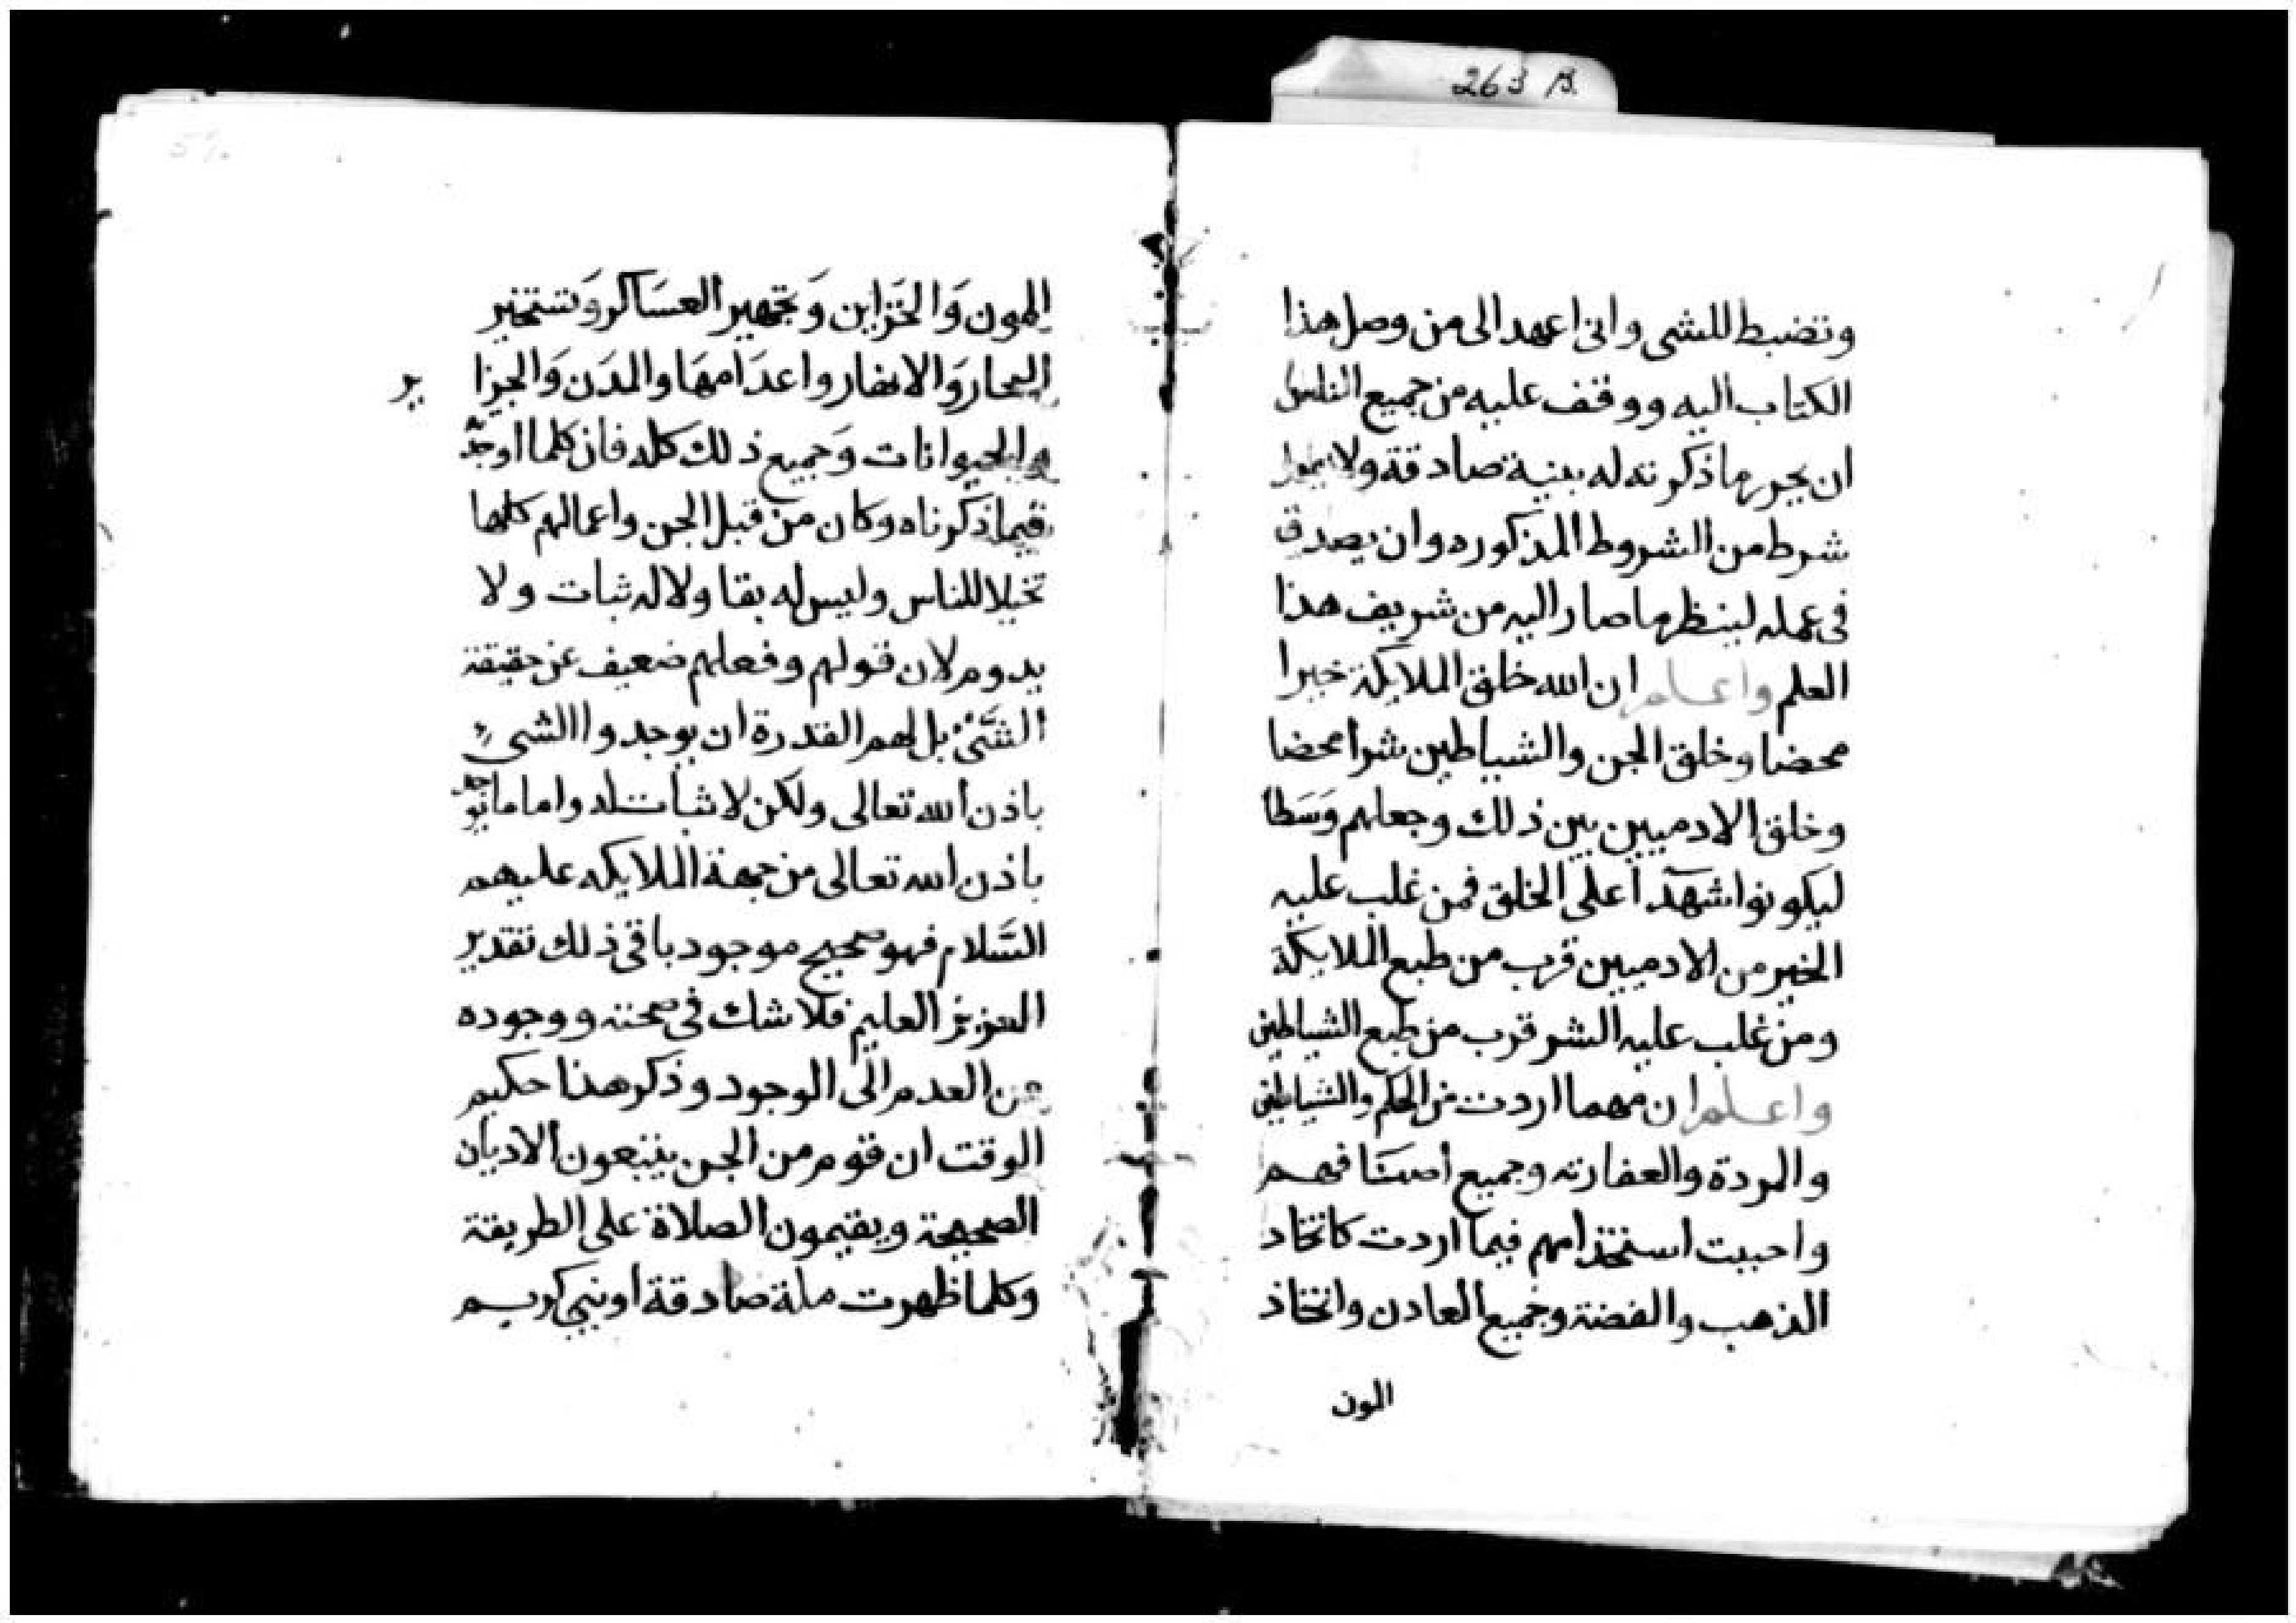 263 B.
وتضبط للشى وانى اعهد الى من وصل هذا
الكتاب اليه ووقف عليه من جميع الناس
ان يجرر ما ذكرته له بنية صادقة ولا
شرط من الشروط المذكوره وان يصدق
فى عمله لينظر ما صار اليه من شريف هذا
العلم واعلم ان الله خلق الملايكة خيرا
محضا وخلق الجن والشياطين شرا محضا
وخلق الادميين بين ذلك وجعلهم وَسَطا
ليكونوا شهدآ على الخلق فمن غلب عليه
الخير من الادميين قرب من طبع الملايكة
ومن غلب عليه الشر قرب من طبع الشياطين
واعلم ان مهما اردت من الحكم والشياطين
والمردة والعفارته وجميع اصنافهم
واحببت استخذامهم فيما اردت كاتخاد
الذهب والفضة وجميع العادن واتخاذ
المون
المون وَالخَزاين وَتجهيز العسَاكر وَتستخير
البحار وَالانهار واعدَامهَا والمدَن وَالجزا ير
والحيوانات وَجميع ذلك كله فان كلما اوجد
فيما ذكرناه وكان من قبل الجن واعمالهم كلها
تخيلا للناس وليس له بقا ولا له ثبات ولا
يدوم لان قولهم وفعلهم ضعيف عن حقيقة
الشَّىْ بل لهم القدرة ان يوجدوا الشىء
باذن الله تعالى ولكن لا ثبات له واما ما يوجد
باذن الله تعالى من جهة الملايكه عليهم
السَّلام فهو صحيح موجود باقى ذلك تقدير
العزيز العليم فلا شك فى صحته ووجوده
من العدم الى الوجود وذكر هذا حكيم
الوقت ان قوم من الجن يتبعون الاديان
الصحيحة ويقيمون الصلاة على الطريقة
وكلما ظهرت ملة صادقة او نبي كريم